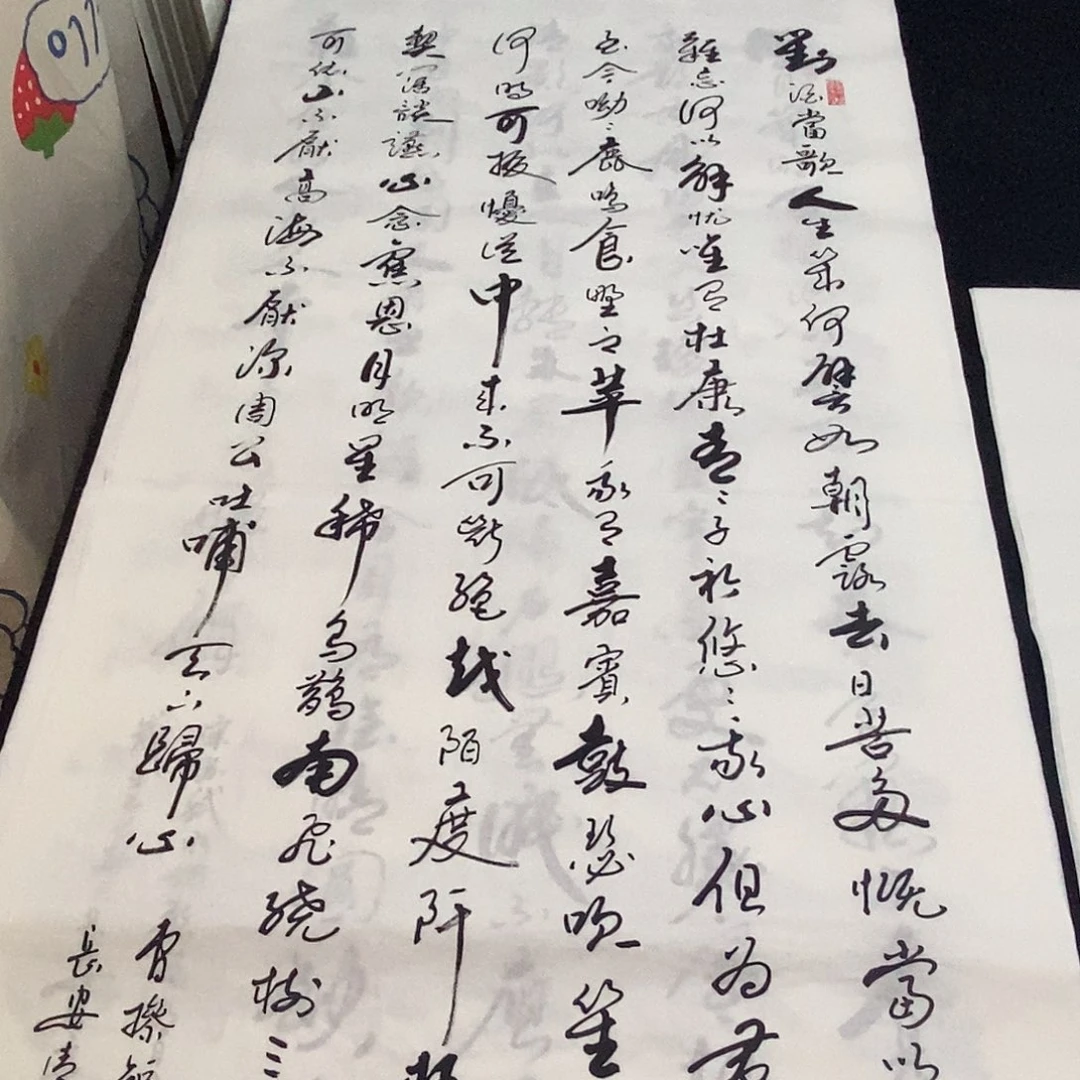 對酒當歌人生幾何譬如朝露去日苦多慨當以
難忘何以解忧唯有杜康青〻子衿悠〻我心但為君
至今呦〻鹿鳴食野之苹我有嘉賓鼓瑟吹笙
何時可掇懮從中來不可斷絕越陌度阡
契闊談讌心念舊恩月明星稀烏鵲南飛繞樹三
可依山不厭高海不厭深周公吐哺天下歸心
曹操短
長安清